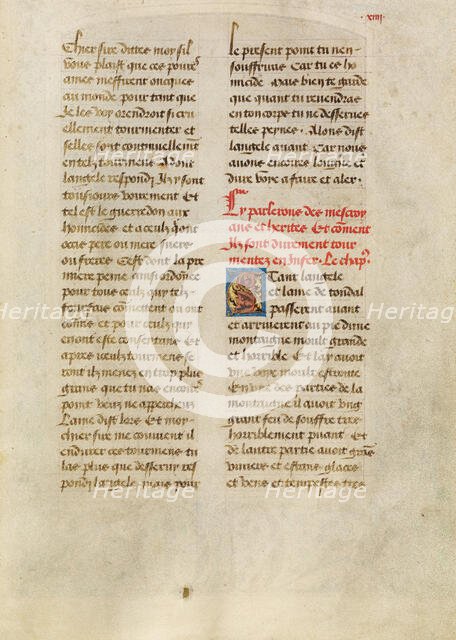 xiiij.
Chier sire dittes moy sil
vous plaist que ces poures
ames meffirent oncques
au monde pour tant que
Je les voy orendroit si cru
ellement tourmenter et
selles sont continuellement
en telz tourmens Adont
langele respondi Ilz y sont
tousiours voirement Et
tel est le guerredon aux
homicides et a ceulz qui ont
occis pere ou mere Suers
ou freres Cest dont la pre
miere peine ainsi ordonee
pour tous ceulz qui telz
comment ou ont
comis et pour ceulz qui
en ont este consentans Et
apres ceulz tourmens se
ront ilz menez en trop plus
grans que tu nas encores
point veuz ne apperceuz
Lame dist lors Et moy
chier sire me couvient il
endurer ces tourmens tu
las plus que desseruy res
pondi langele maiz pour
le present point tu nen
souffriras Car tu es ho
micide Maiz bien te garde
que quant tu reuendras
en ton corpz tu ne desserues
telles peynes. Alons dist
langele auant Car nous
auons encores longue et
dure voye a faire et aler.
Cy parlerons des mescroy
ans et herites Et coment
Ilz sont durement tour
mentez en Infer. Le chap.
A Tant langele
et lame de tondal
passerent auant
et arriuerent au pie dune
montaigne moult grande
et horrible Et la y auoit
une voye moult estroite
En lune des parties de la
montaigne il auoit ung
grant feu de souffre tres
horriblement puant Et
de lautre partie auoit grans
et estrans glaces
et vens et tempestes tres
Heritage
Heritage
Heritage
Heritage
Heritage
Heritage